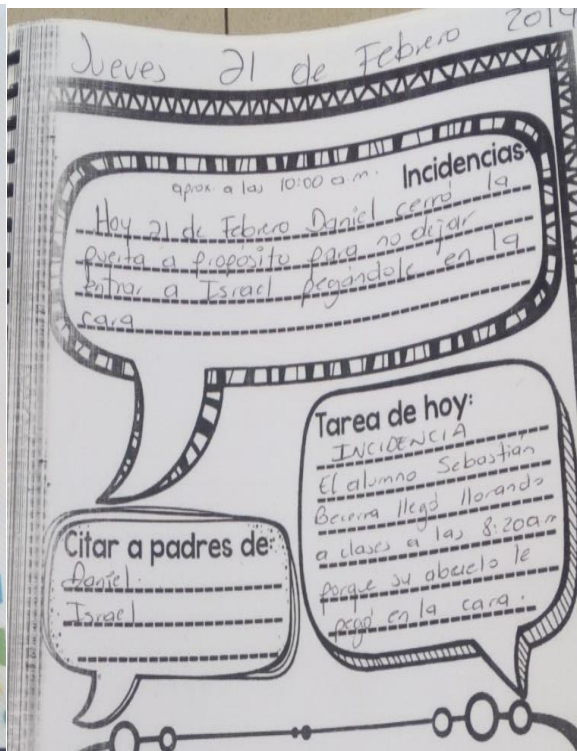 Jueves 21 de Febrero 2019
Incidencias
aprox. a las 10:00 a.m.
Hoy 21 de Febrero Daniel cerró la
puerta a propósito para no dejar
entrar a Israel pegándole en la
cara
Tarea de hoy:
INCIDENCIA
El alumno Sebastián
Becerra llegó llorando
a clases a las 8:20a.m
porque su abuelo le
pegó en la cara.
Citar a padres de:
Daniel.
Israel